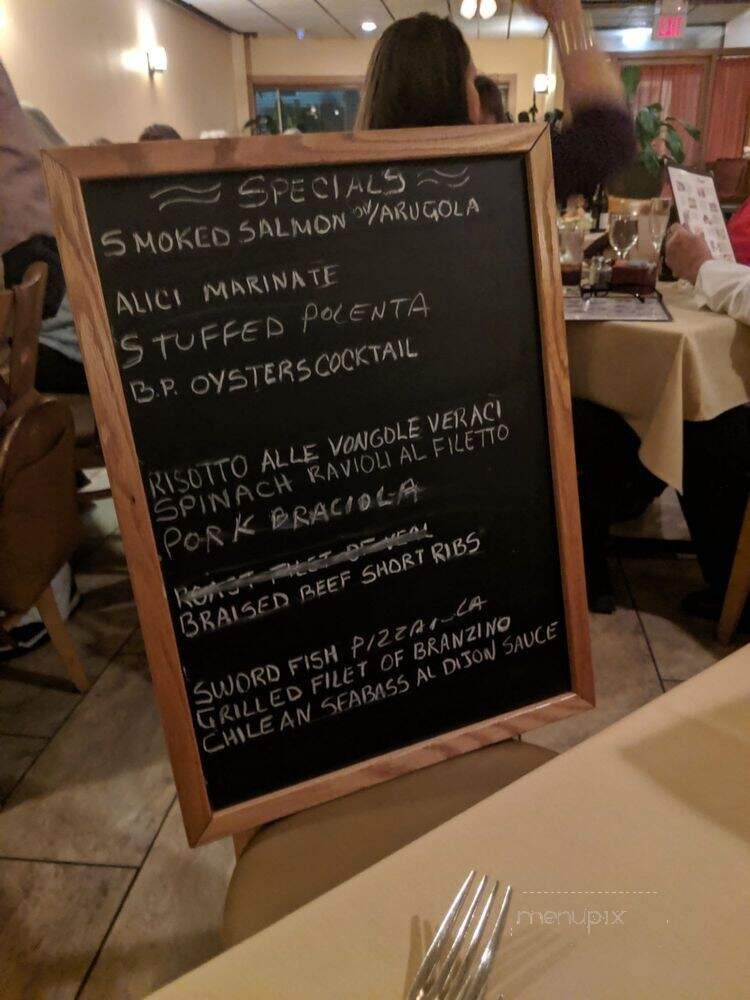 SPECIALS
SMOKED SALMON W/ARUGOLA
ALICI MARINATE
STUFFED POLENTA
B.P. OYSTERS COCKTAIL
RISOTTO ALLE VONGOLE VERACI
SPINACH RAVIOLI AL FILETTO
PORK BRACIOLA
ROAST FILET OF VEAL
BRAISED BEEF SHORT RIBS
SWORD FISH
GRILLED FILET OF BRANZINO
CHILEAN SEABASS AL DIJON SAUCE
EXIT
menupix